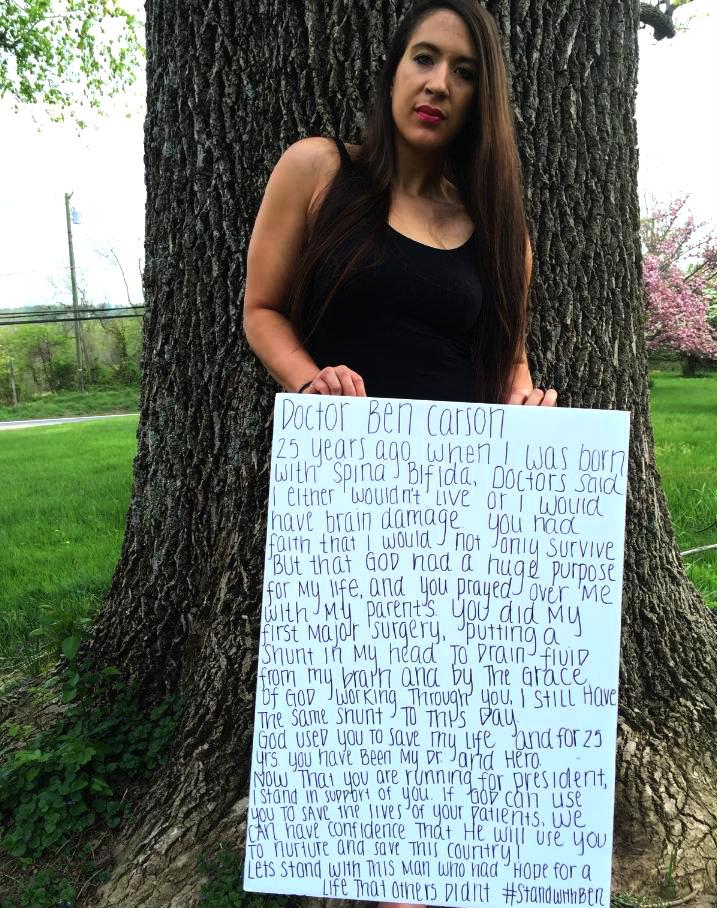 DOCTOR BEN CARSON
25 years ago when I was born
with SPINA BIFIDA, DOCTORS SAID
I either wouldn't live or I would
have brain damage. you had
faith that I would not only survive
BUT that GOD had a huge purpose
for my life, and you prayed over me
with my parents. you did my
first major surgery, putting a
shunt in my head to drain fluid
from my brain and by the grace
of GOD working through you, I still have
the same shunt to this day.
God used you to save my life and for 25
yrs. you have been my Dr. and Hero.
NOW that you are running for president,
I stand in support of you. If GOD can use
you to save the lives of your patients. we
can have confidence that He will use you
to nurture and save this country!
Lets stand with this man who had Hope for a
Life that others didnt #StandwithBen